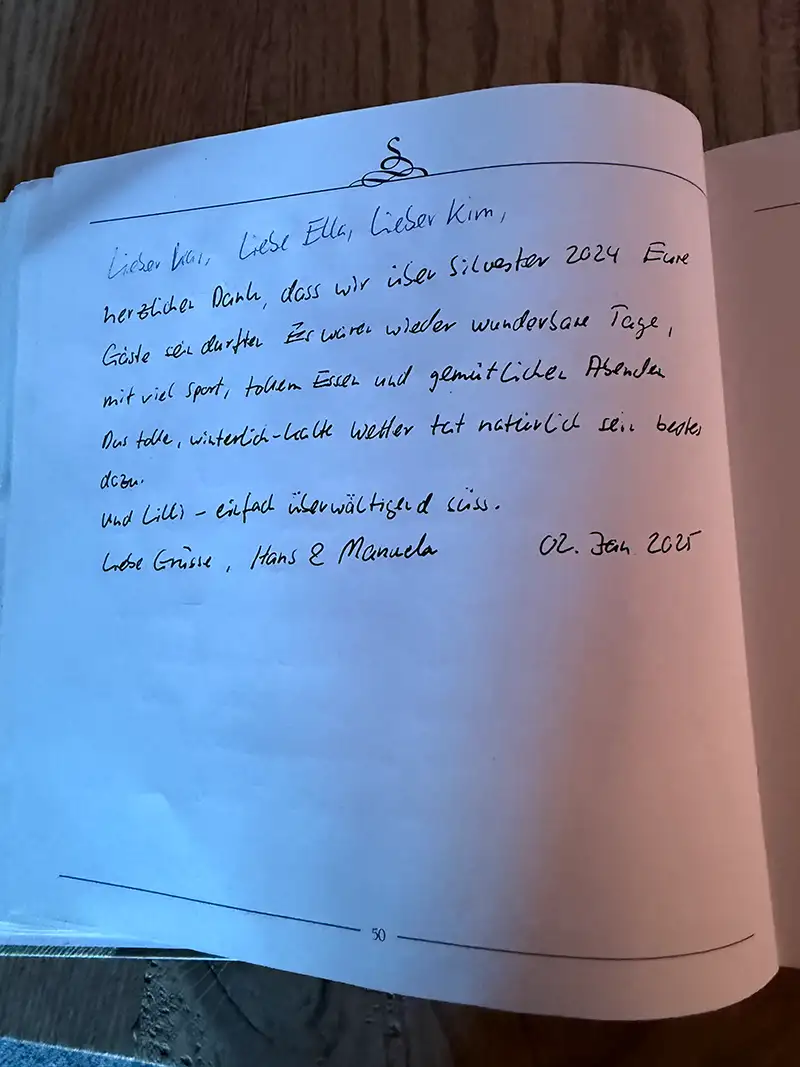 S
Lieber Kai, Liebe Ella, Lieber Kim,
herzlichen Dank, dass wir über Silvester 2024 Eure
Gäste sein durften Es waren wieder wunderbare Tage,
mit viel Sport, tollem Essen und gemütlichen Abenden
Das tolle, winterlich-kalte Wetter tat natürlich sein bestes
dazu.
Und Lilli – einfach überwältigend süss.
Liebe Grüsse, Hans & Manuela 02. Jan 2025
50